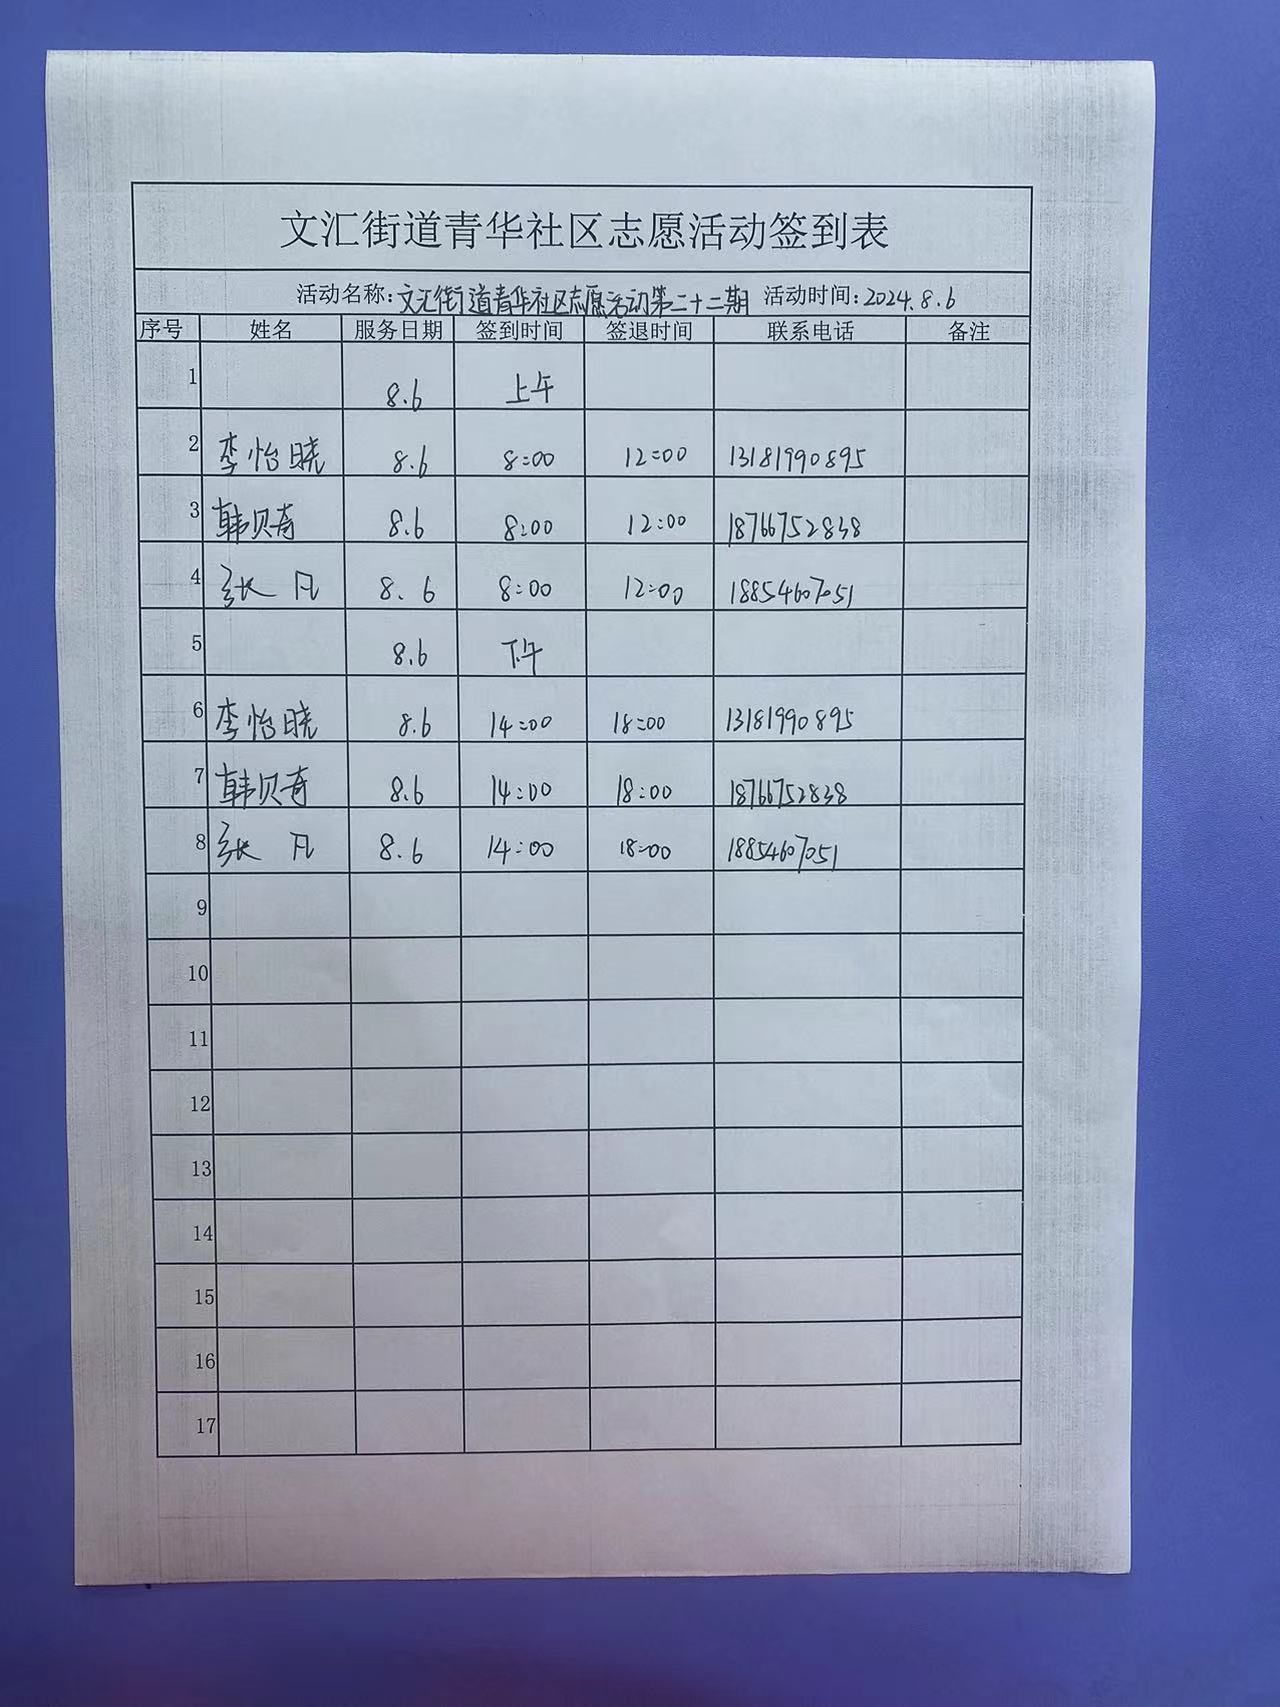 文汇街道青华社区志愿活动签到表
活动名称:文汇街道青华社区志愿活动第二十二期 活动时间:2024.8.6
序号 姓名 服务日期 签到时间 签退时间 联系电话 备注
1 8.6 上午
2 李怡晓 8.6 8:00 12:00 13181990895
3 韩贝奇 8.6 8:00 12:00 18766752838
4 张凡 8.6 8:00 12:00 18854607051
5 8.6 下午
6 李怡晓 8.6 14:00 18:00 13181990895
7 韩贝奇 8.6 14:00 18:00 18766752838
8 张凡 8.6 14:00 18:00 18854607051
9
10
11
12
13
14
15
16
17